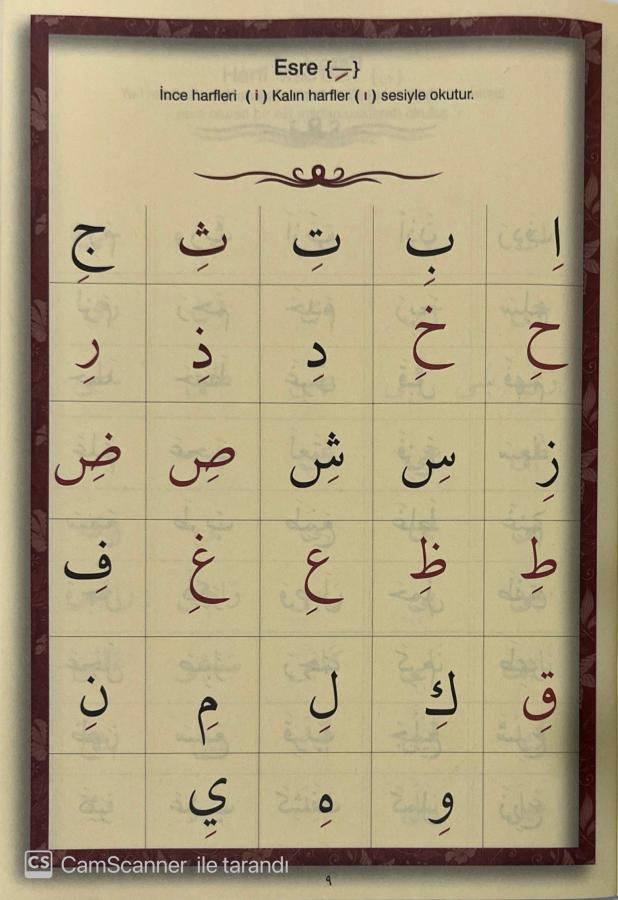 Esre {ـِ}
İnce harfleri ( i ) Kalın harfler ( ı ) sesiyle okutur.
اِ بِ تِ ثِ جِ
حِ خِ دِ ذِ رِ
زِ سِ شِ صِ ضِ
طِ ظِ عِ غِ فِ
قِ كِ لِ مِ نِ
وِ هِ يِ
CS CamScanner ile tarandı
٩